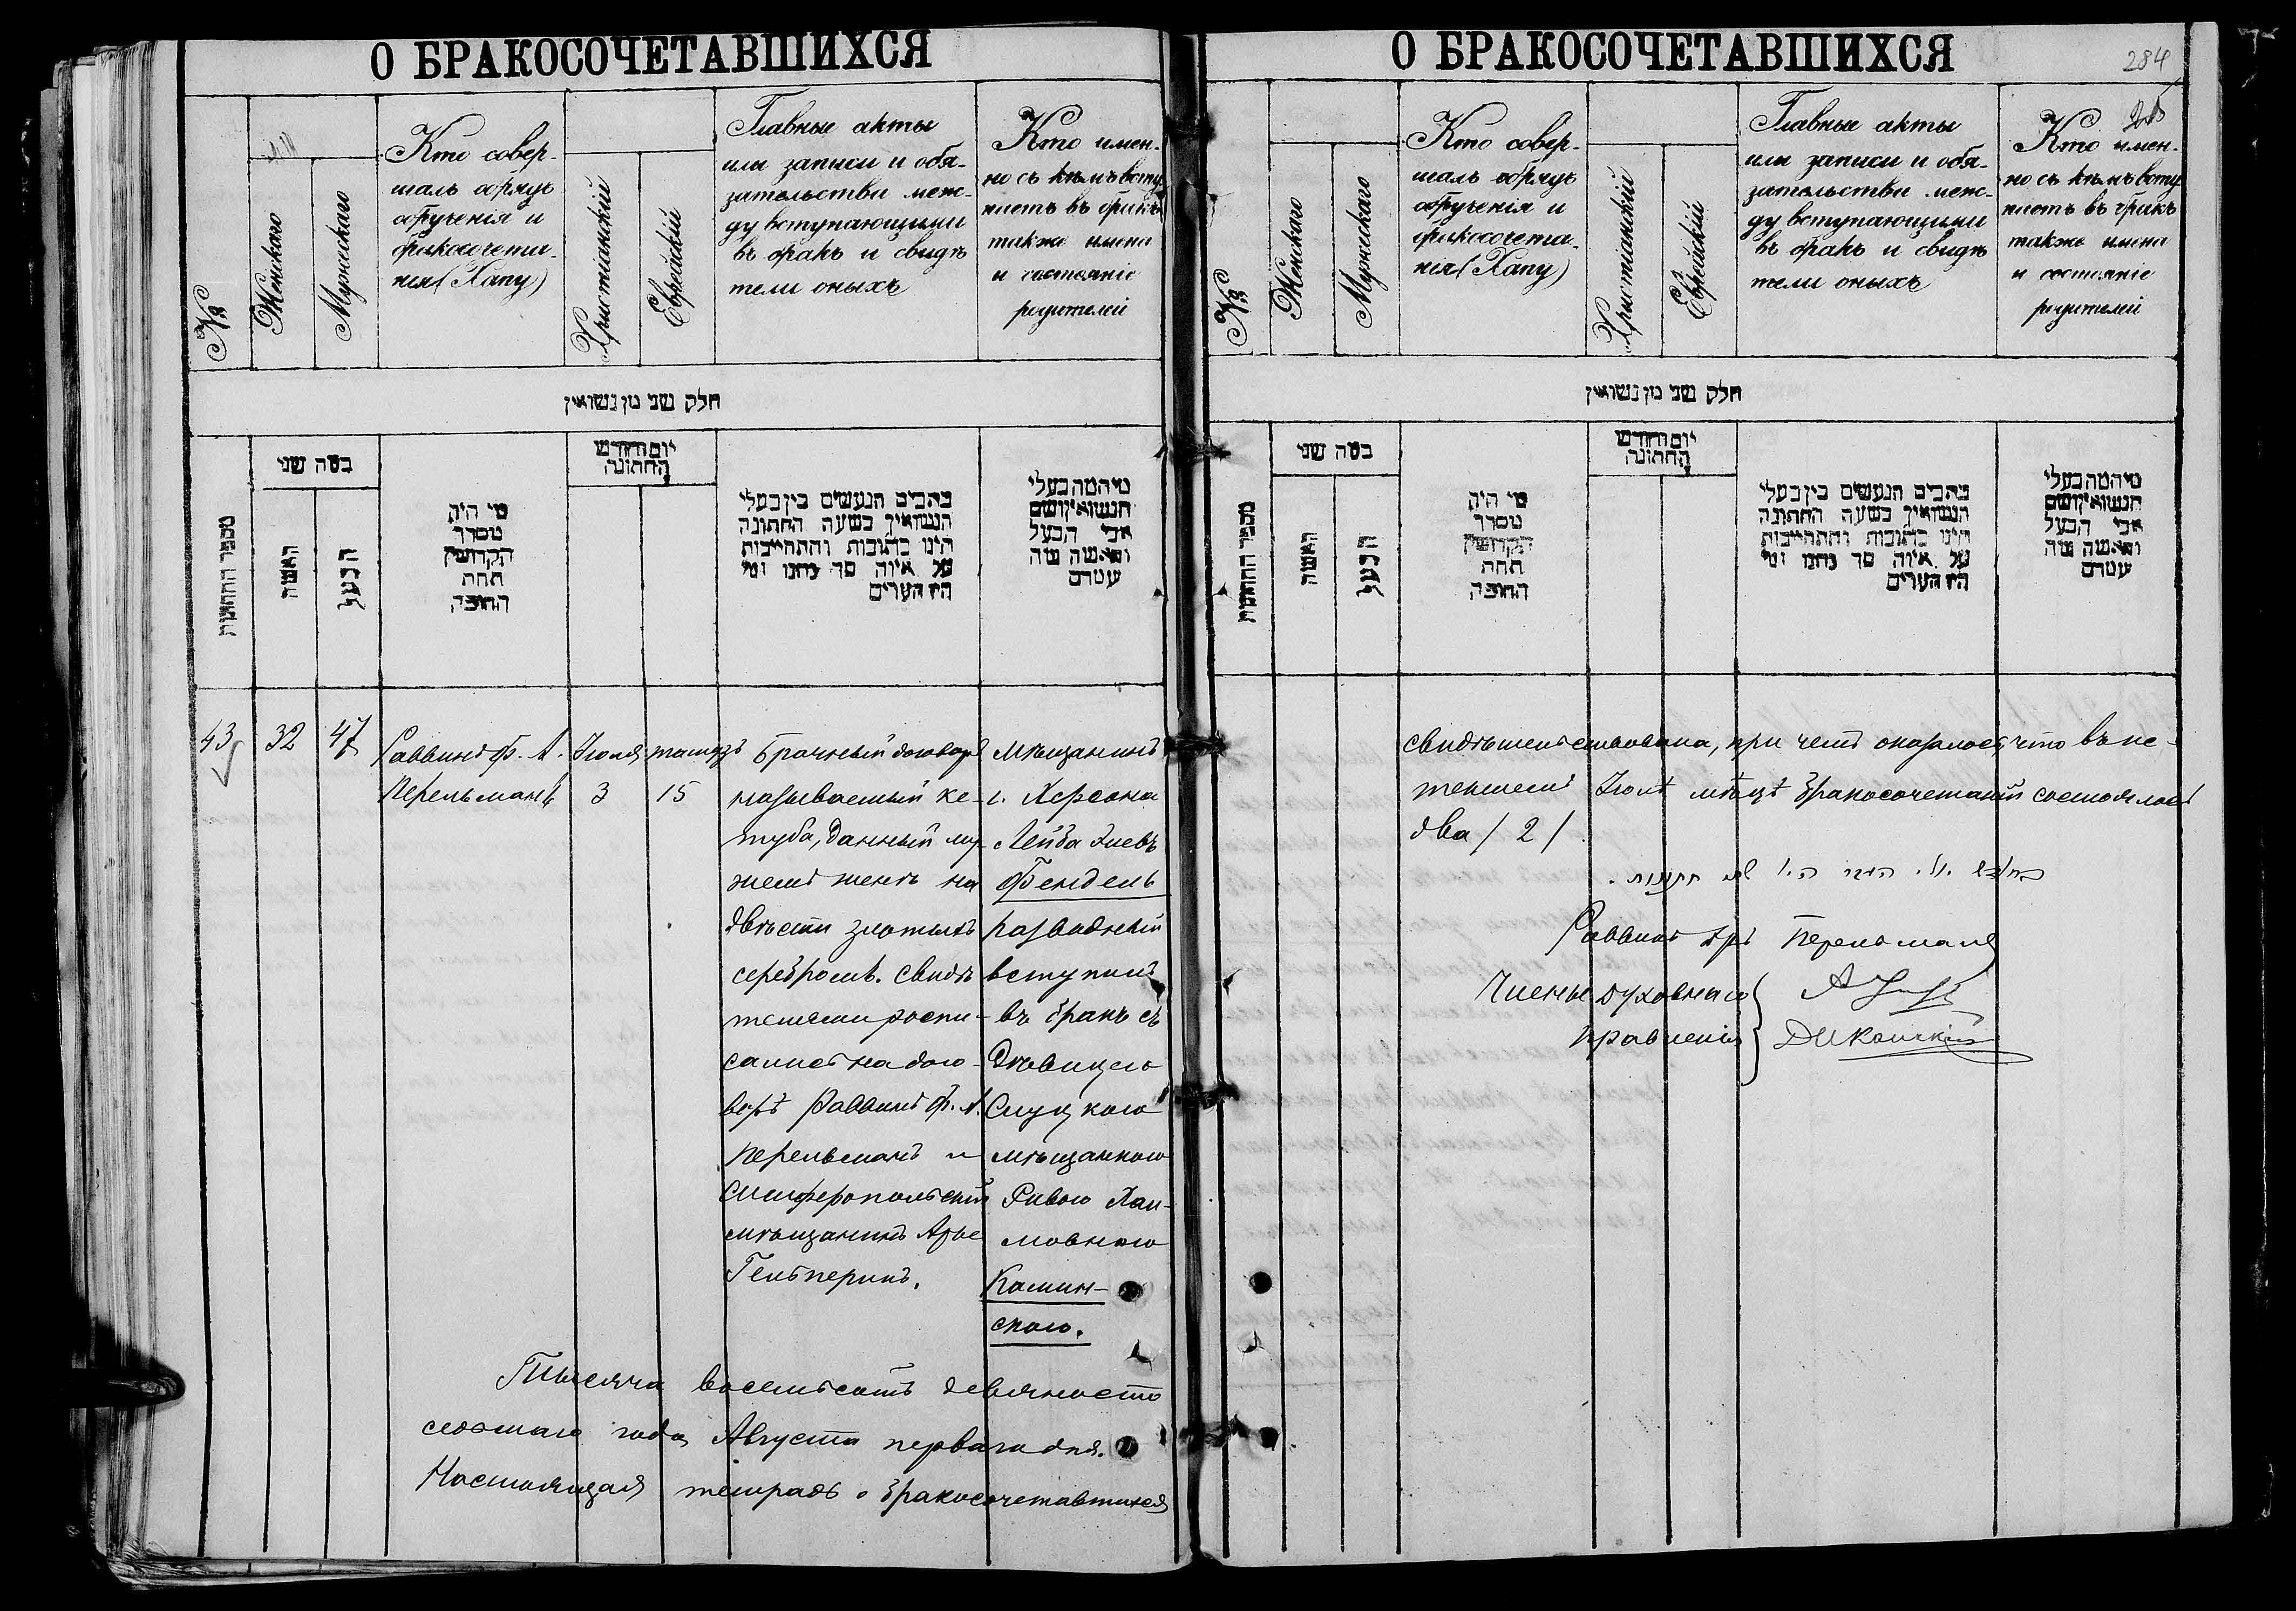 О БРАКОСОЧЕТАВШИХСЯ
№
Женскаго
Мужескаго
Кто совер-
шалъ обрядъ
обрученія и
бракосочета-
нія (Хапу)
Христіанскій
Еврейскій
Главные акты
или записи и обя-
зательства меж-
ду вступающими
въ бракъ и свидѣ
тели оныхъ
Кто имен-
но съ кѣмъ всту
паетъ въ бракъ
также имена
и состояніе
родителей
חלק שני מן נשואין
מספר החתונות
כמה שני
האשה
הבעל
מי היה
מסדר
הקדושין
תחת
החופה
יום וחודש
החתונה
כתבים הנעשים בין בעלי
הנשואין בשעה החתונה
היינו כתובות והתחייבות
על איזה סך נתנו ומי
הם הערים
מי המה בעלי
הנשואין ושם
אבי הבעל
והאשה
43
32
47
Раввинъ Ф. А.
Перельманъ
Іюля
3
тамузъ
15
Брачный договоръ
называемый ке-
туба, данный му-
жемъ женѣ на
двѣсти злотыхъ
серебромъ. Свидѣ
телями распи-
сались на дого-
ворѣ Раввинъ Ф. А.
Перельманъ и
Симферопольскій
мѣщанинъ Арье
Гельперинъ.
мѣщанинъ
г. Херсона
Лейба
Фендель
разводный
вступилъ
въ бракъ съ
дѣвицею
Слуцкою
мѣщанкою
Ривою Хаи-
мовною
Камин-
скою.
Тысяча восемьсотъ девяносто
седьмаго года Августа перваго дня.
Настоящая тетрадь о бракосочетавшихся
О БРАКОСОЧЕТАВШИХСЯ
284
№
Женскаго
Мужескаго
Кто совер-
шалъ обрядъ
обрученія и
бракосочета-
нія (Хапу)
Христіанскій
Еврейскій
Главные акты
или записи и обя-
зательства меж-
ду вступающими
въ бракъ и свидѣ
тели оныхъ
Кто имен-
но съ кѣмъ всту
паетъ въ бракъ
также имена
и состояніе
родителей
חלק שני מן נשואין
מספר החתונות
כמה שני
האשה
הבעל
מי היה
מסדר
הקדושין
תחת
החופה
יום וחודש
החתונה
כתבים הנעשים בין בעלי
הנשואין בשעה החתונה
היינו כתובות והתחייבות
על איזה סך נתנו ומי
הם הערים
מי המה בעלי
הנשואין ושם
אבי הבעל
והאשה
свидѣтельствована, при чемъ оказалось, что въ ис-
текшемъ Іюлѣ мѣсяцѣ бракосочетаній состоялось
два / 2 /
Раввинъ Перельманъ
Члены Духовнаго
правленія